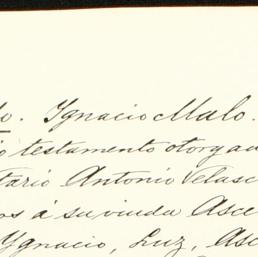 do. Ygnacio Malo.
testamento otorgad
tario Antonio Velasc
rs á su viuda Asce
Ygnacio, Luz, Asc